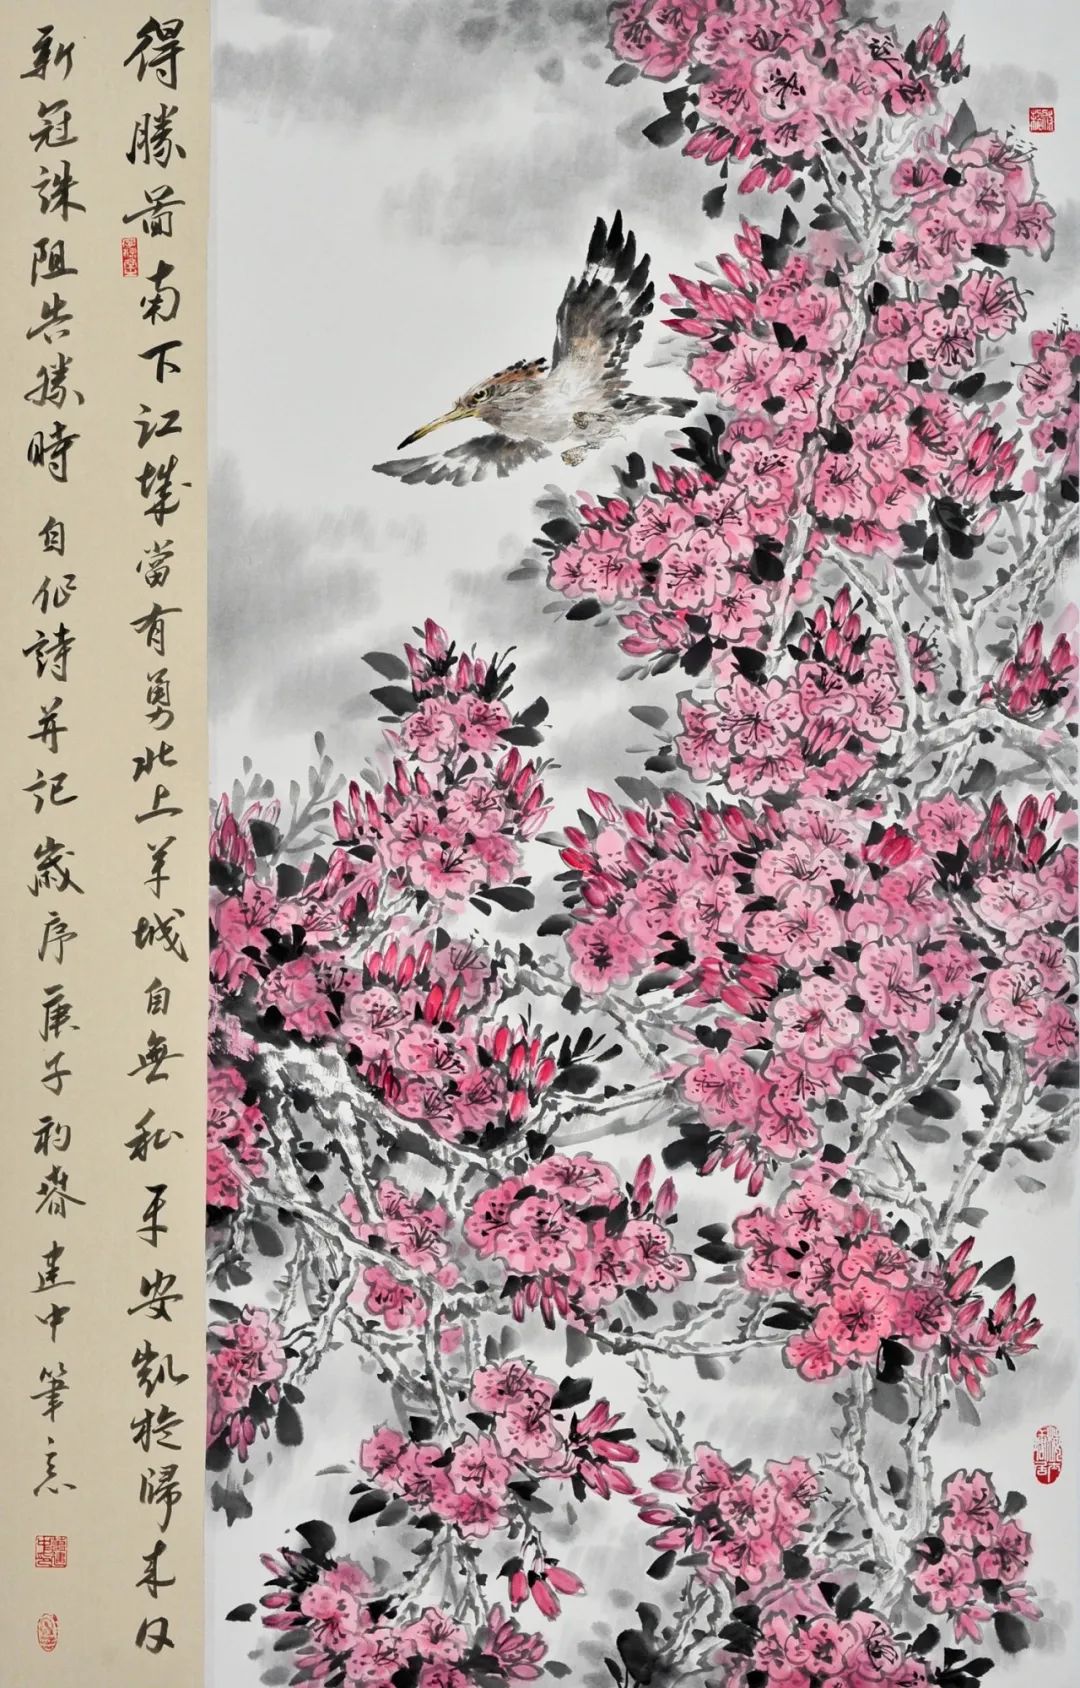 得勝圖 南下江城當有勇北上羊城自無私平安凱旋歸來日
新冠誅阻告勝時 自作詩并記 歲序庚子初春建中筆意